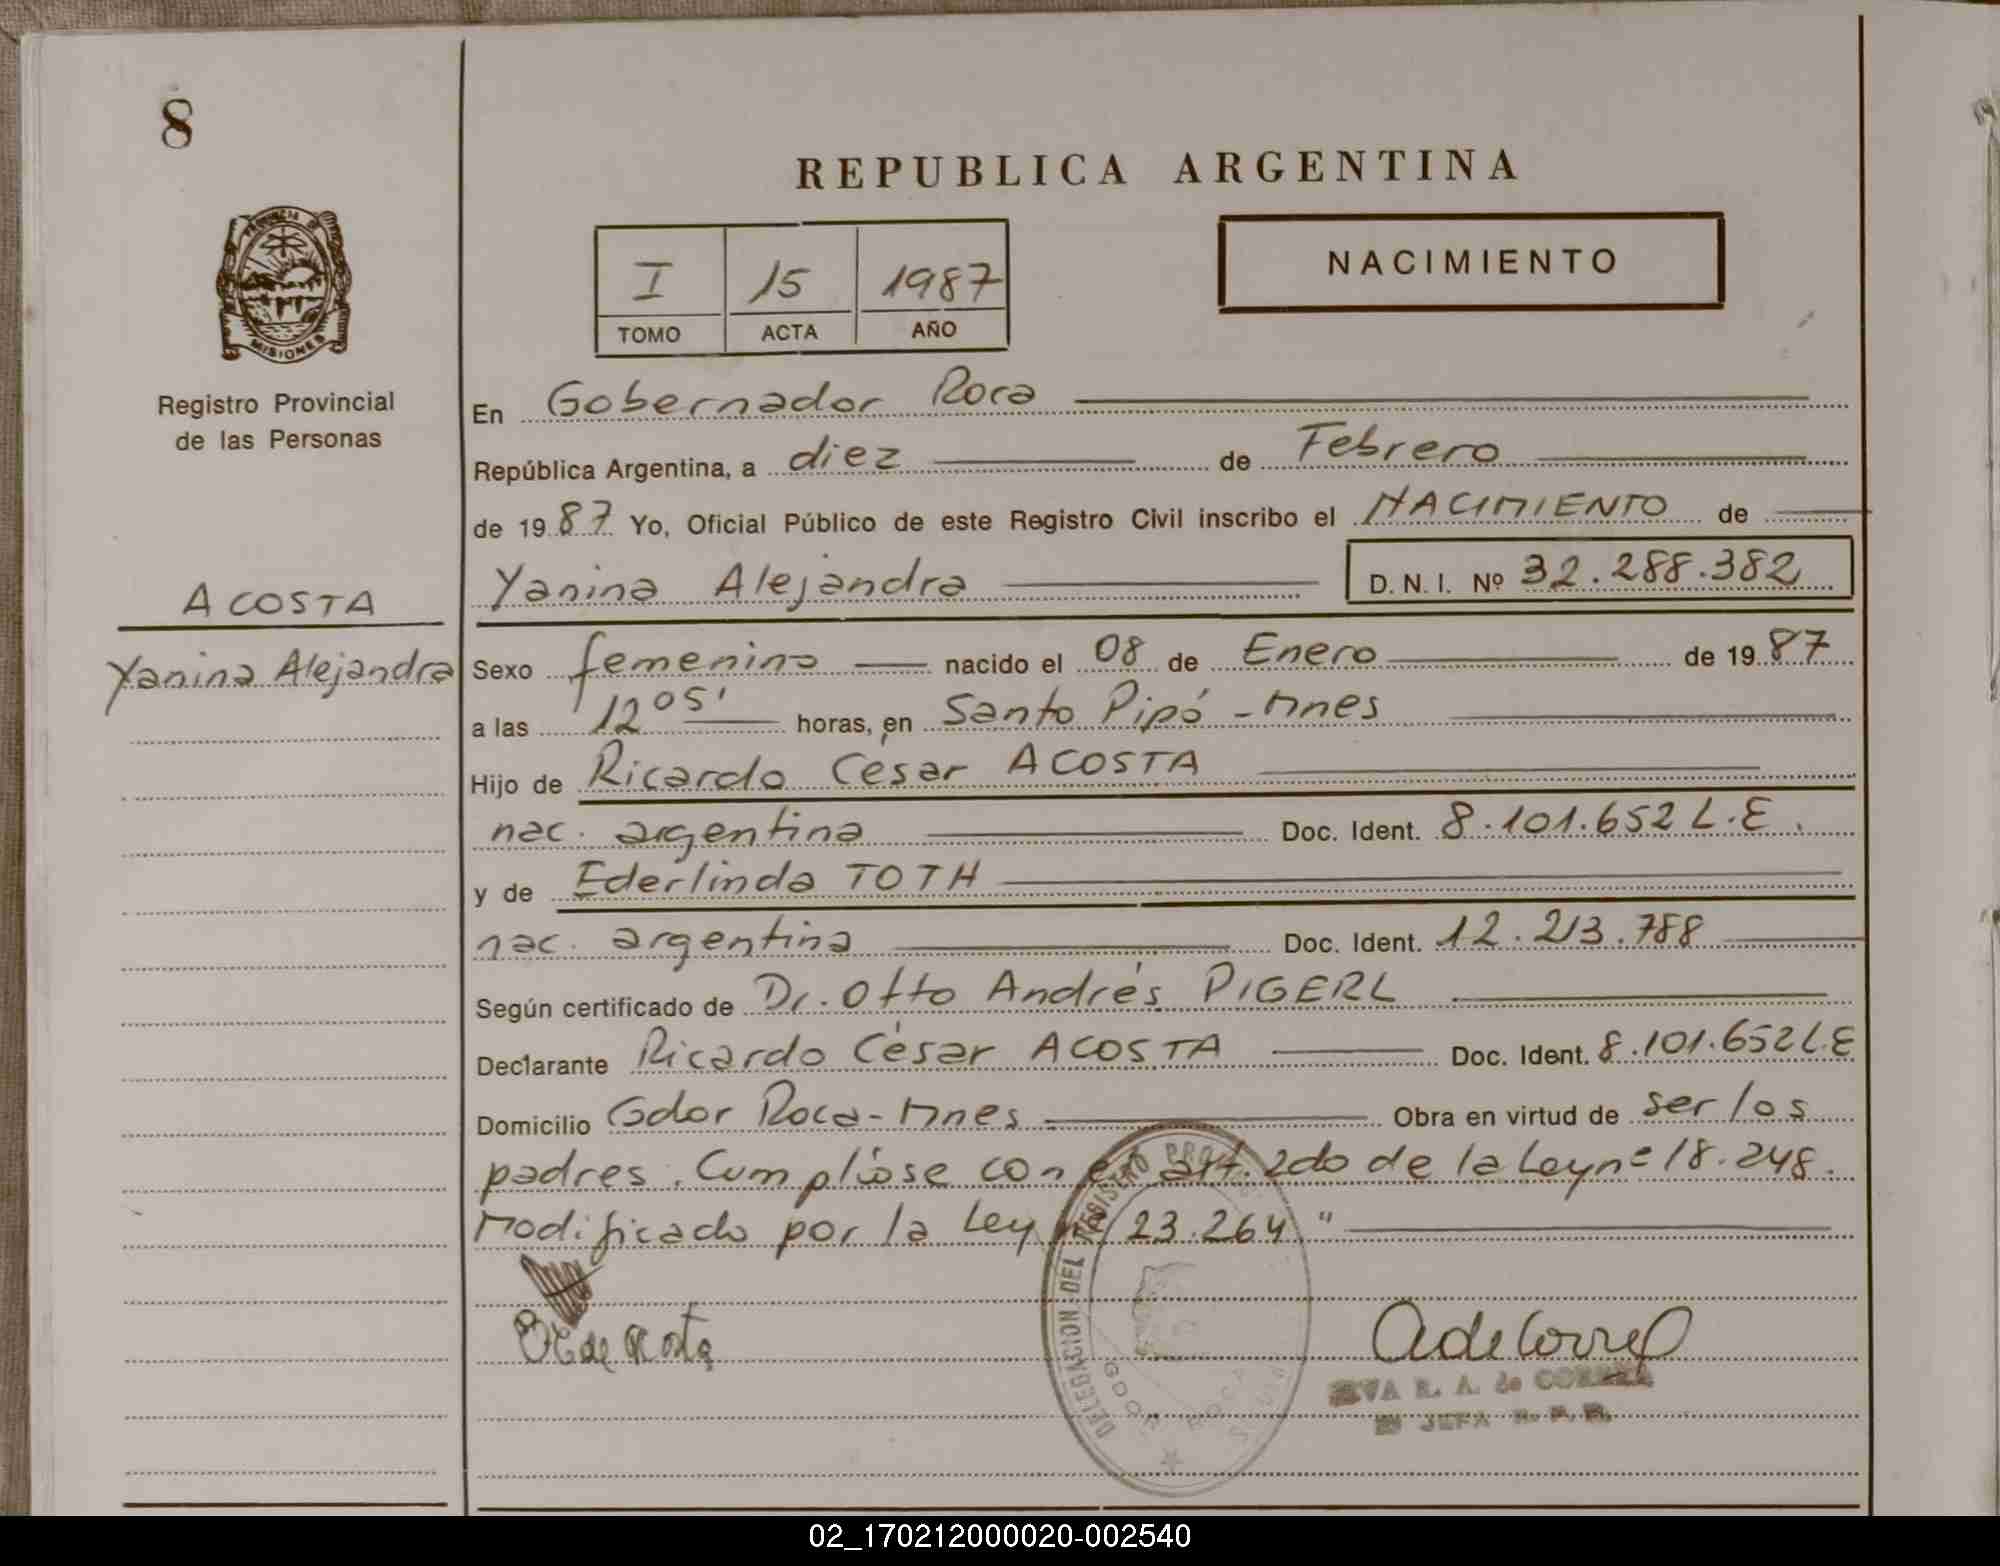 8
PROVINCIA DE
MISIONES
Registro Provincial
de las Personas
ACOSTA
Yanina Alejandra
REPUBLICA ARGENTINA
I 15 1987
TOMO ACTA AÑO
NACIMIENTO
En Gobernador Roca
República Argentina, a diez de Febrero
de 1987 Yo, Oficial Público de este Registro Civil inscribo el NACIMIENTO de
Yanina Alejandra D.N.I. Nº 32.288.382
Sexo femenino nacido el 08 de Enero de 1987
a las 12 05' horas, en Santo Pipó - Mnes
Hijo de Ricardo Cesar ACOSTA
nac. argentina Doc. Ident. 8.101.652 L.E.
y de Ederlinda TOTH
nac. argentina Doc. Ident. 12.213.788
Según certificado de Dr. Otto Andrés PIGERL
Declarante Ricardo César ACOSTA Doc. Ident. 8.101.652 L.E
Domicilio Gdor Roca - Mnes Obra en virtud de ser los
padres. Cumplióse con el art. 2do de la Ley nº 18.248.
Modificado por la Ley nº 23.264"
DELEGACION DEL REGISTRO
GDOR ROCA
R. A. de CORREA
JEFA R. P. P.
02_170212000020-002540